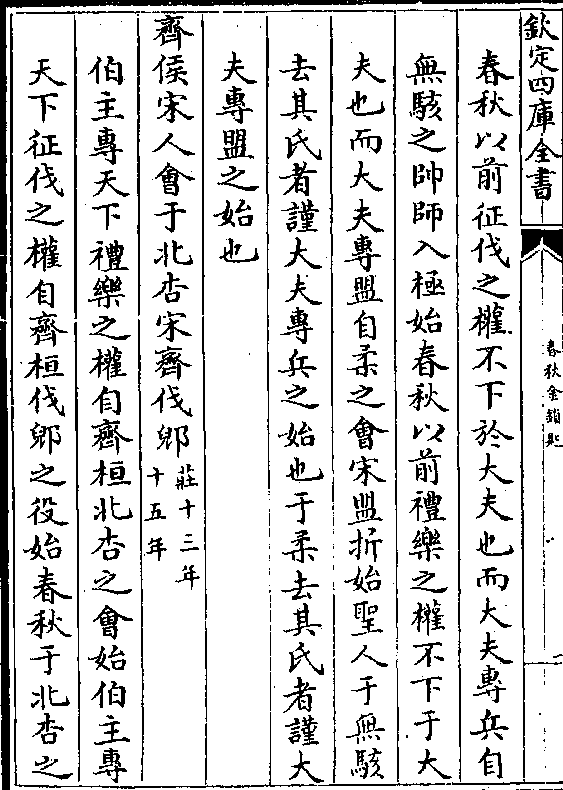 欽定四庫全書
春秋金鎖匙
春秋以前征伐之權不下於大夫也而大夫專兵自
無駭之帥師入極始春秋以前禮樂之權不下于大
夫也而大夫專盟自柔之會宋盟折始聖人于無駭
去其氏者謹大夫專兵之始也于柔去其氏者謹大
夫專盟之始也
齊侯宋人會于北杏宋齊伐郳莊十三年十五年
伯主專天下禮樂之權自齊桓北杏之會始伯主專
天下征伐之權自齊桓伐郳之役始春秋于北杏之